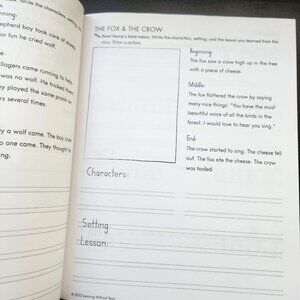 Write the characters, setting,
herd boy took care of sheep
fun he cried wolf.
lagers came running to help
was no wolf. He tricked them
y played the same prank on
s several times.
a wolf came. The boy cried
one came. They thought
THE FOX & THE CROW
Read Aesop's fable below. Write the characters, setting, and the lesson you learned from the
story. Draw a picture.
Beginning:
The fox saw a crow high up in the tree
with a piece of cheese.
Middle:
The fox flattered the crow by saying
many nice things: "You have the most
beautiful voice of all the birds in the
forest. I would love to hear you sing."
End:
The crow started to sing. The cheese fell
out. The fox ate the cheese. The crow
was fooled.
Characters:
Setting:
Lesson: